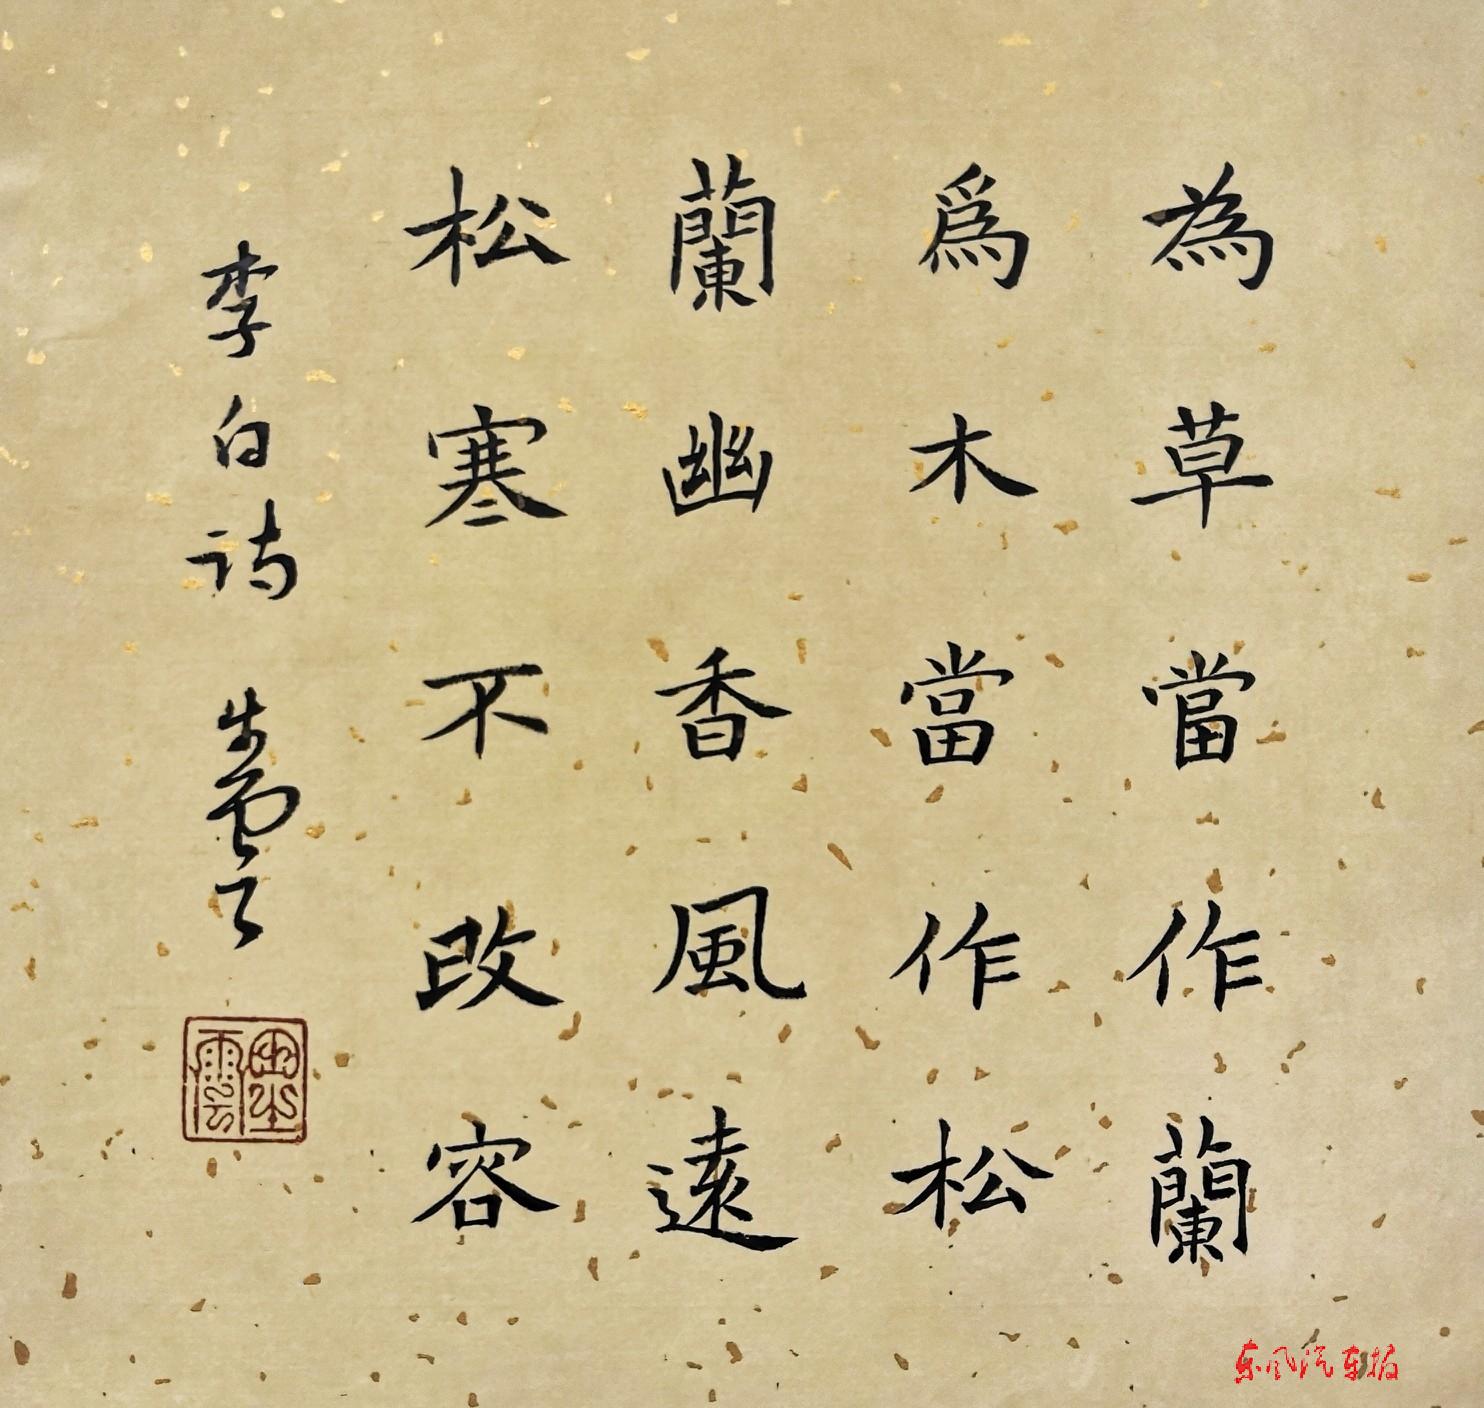 為草當作蘭
爲木當作松
蘭幽香風遠
松寒不改容
李白詩
东风汽车报